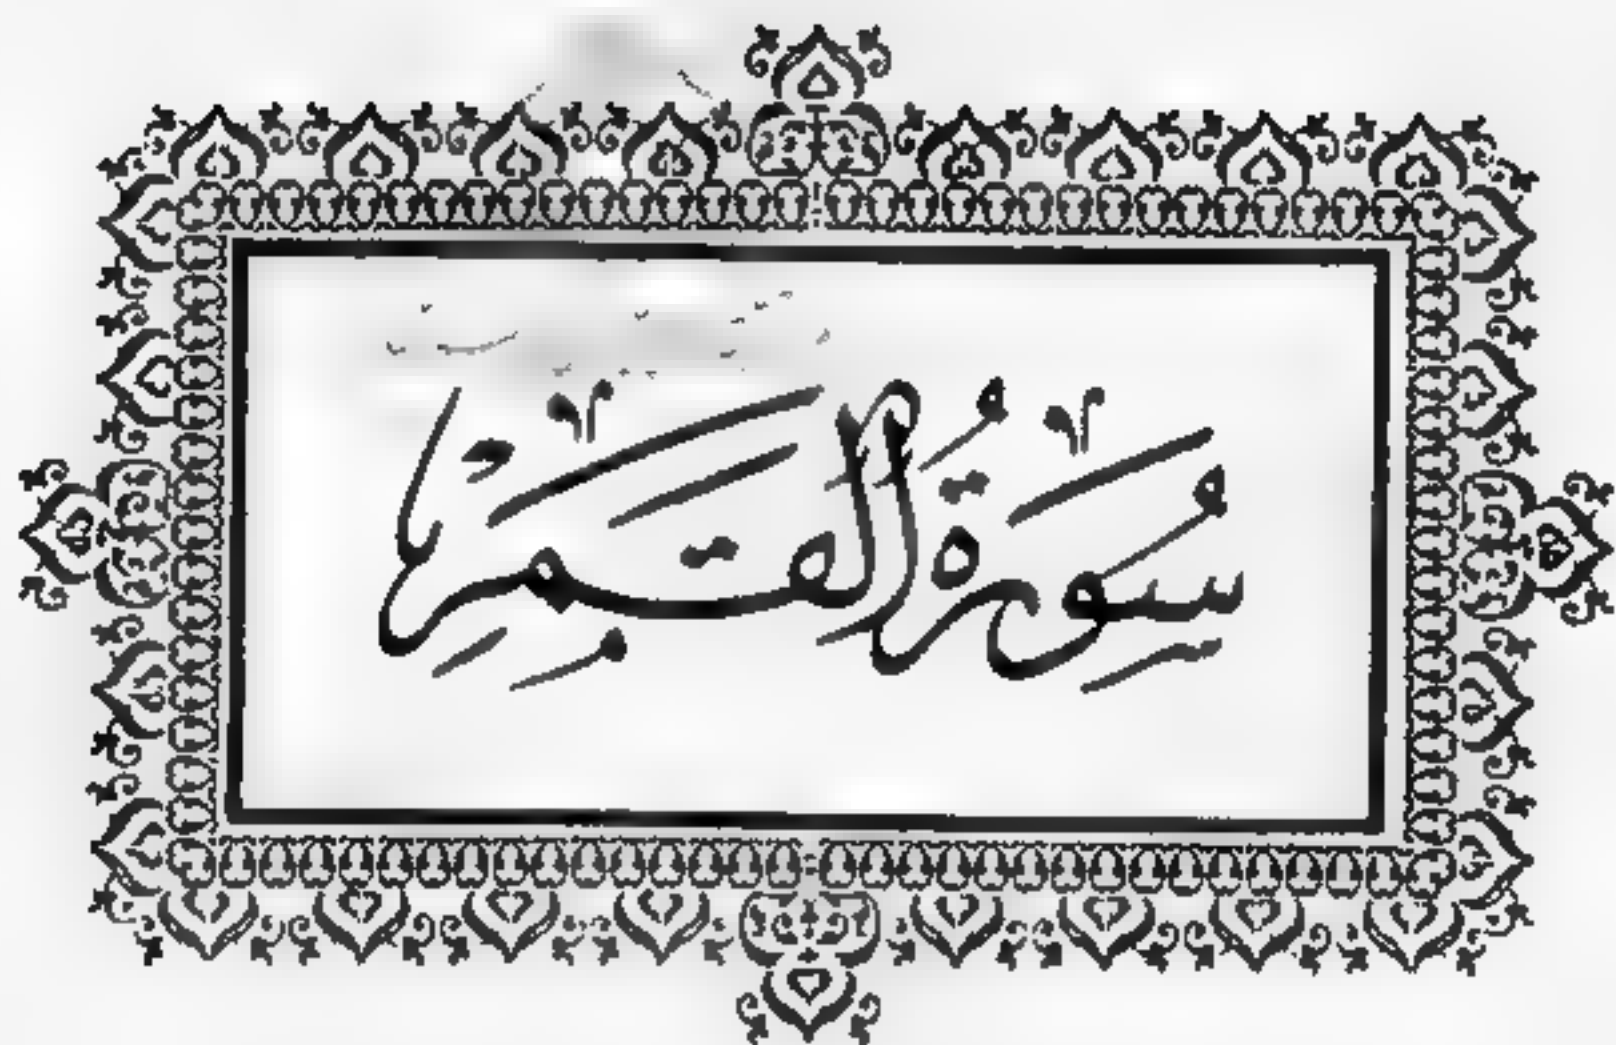 سُورَةُ القَمَرِ